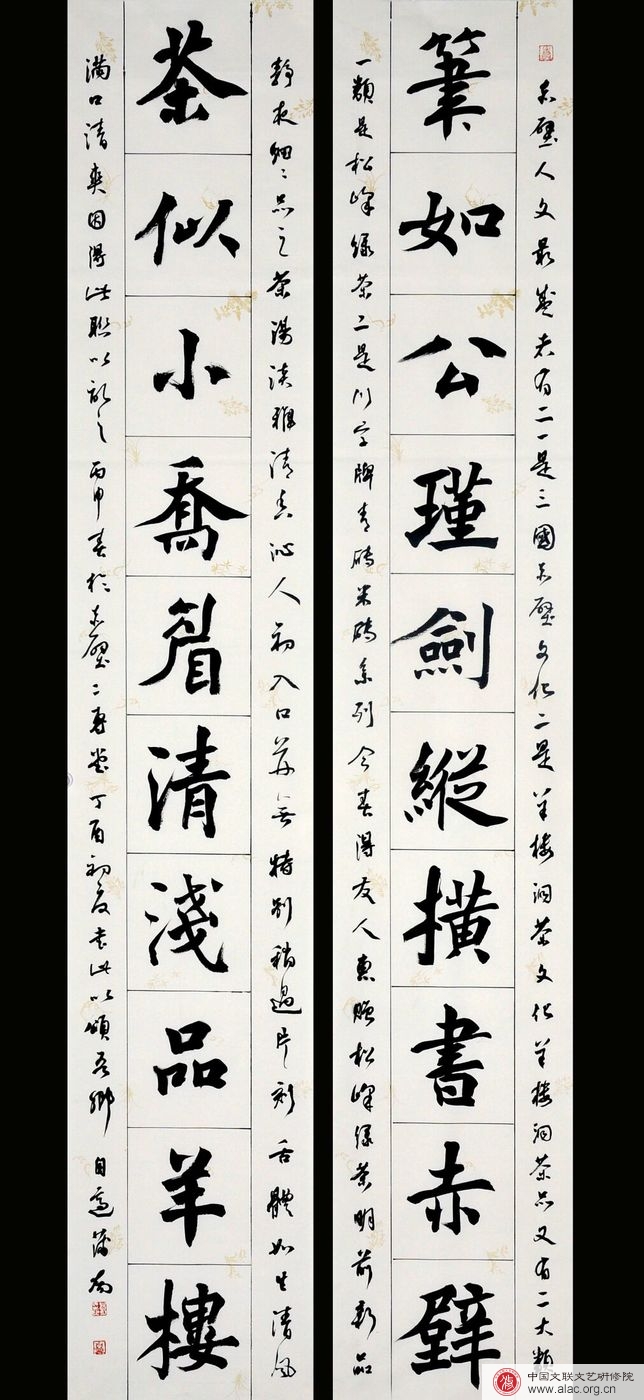 筆如公瑾劍縱橫書赤壁
茶似小喬眉清淺品羊樓
赤壁人文最盛者有二一是三國赤壁文化二是羊樓洞茶文化羊樓洞茶品又有二大類
一類是松峰綠茶二是川字牌青磚米磚系列今春得友人惠贈松峰綠茶明前新品
靜夜細細品之茶湯淡雅清香沁人初入口並無特別稍過片刻舌體如生清風
滿口清爽因得此聯以記之丙申春於赤壁二酉堂丁酉初夏書此以頌吾鄉
中国文联文艺研修院
www.alac.org.cn